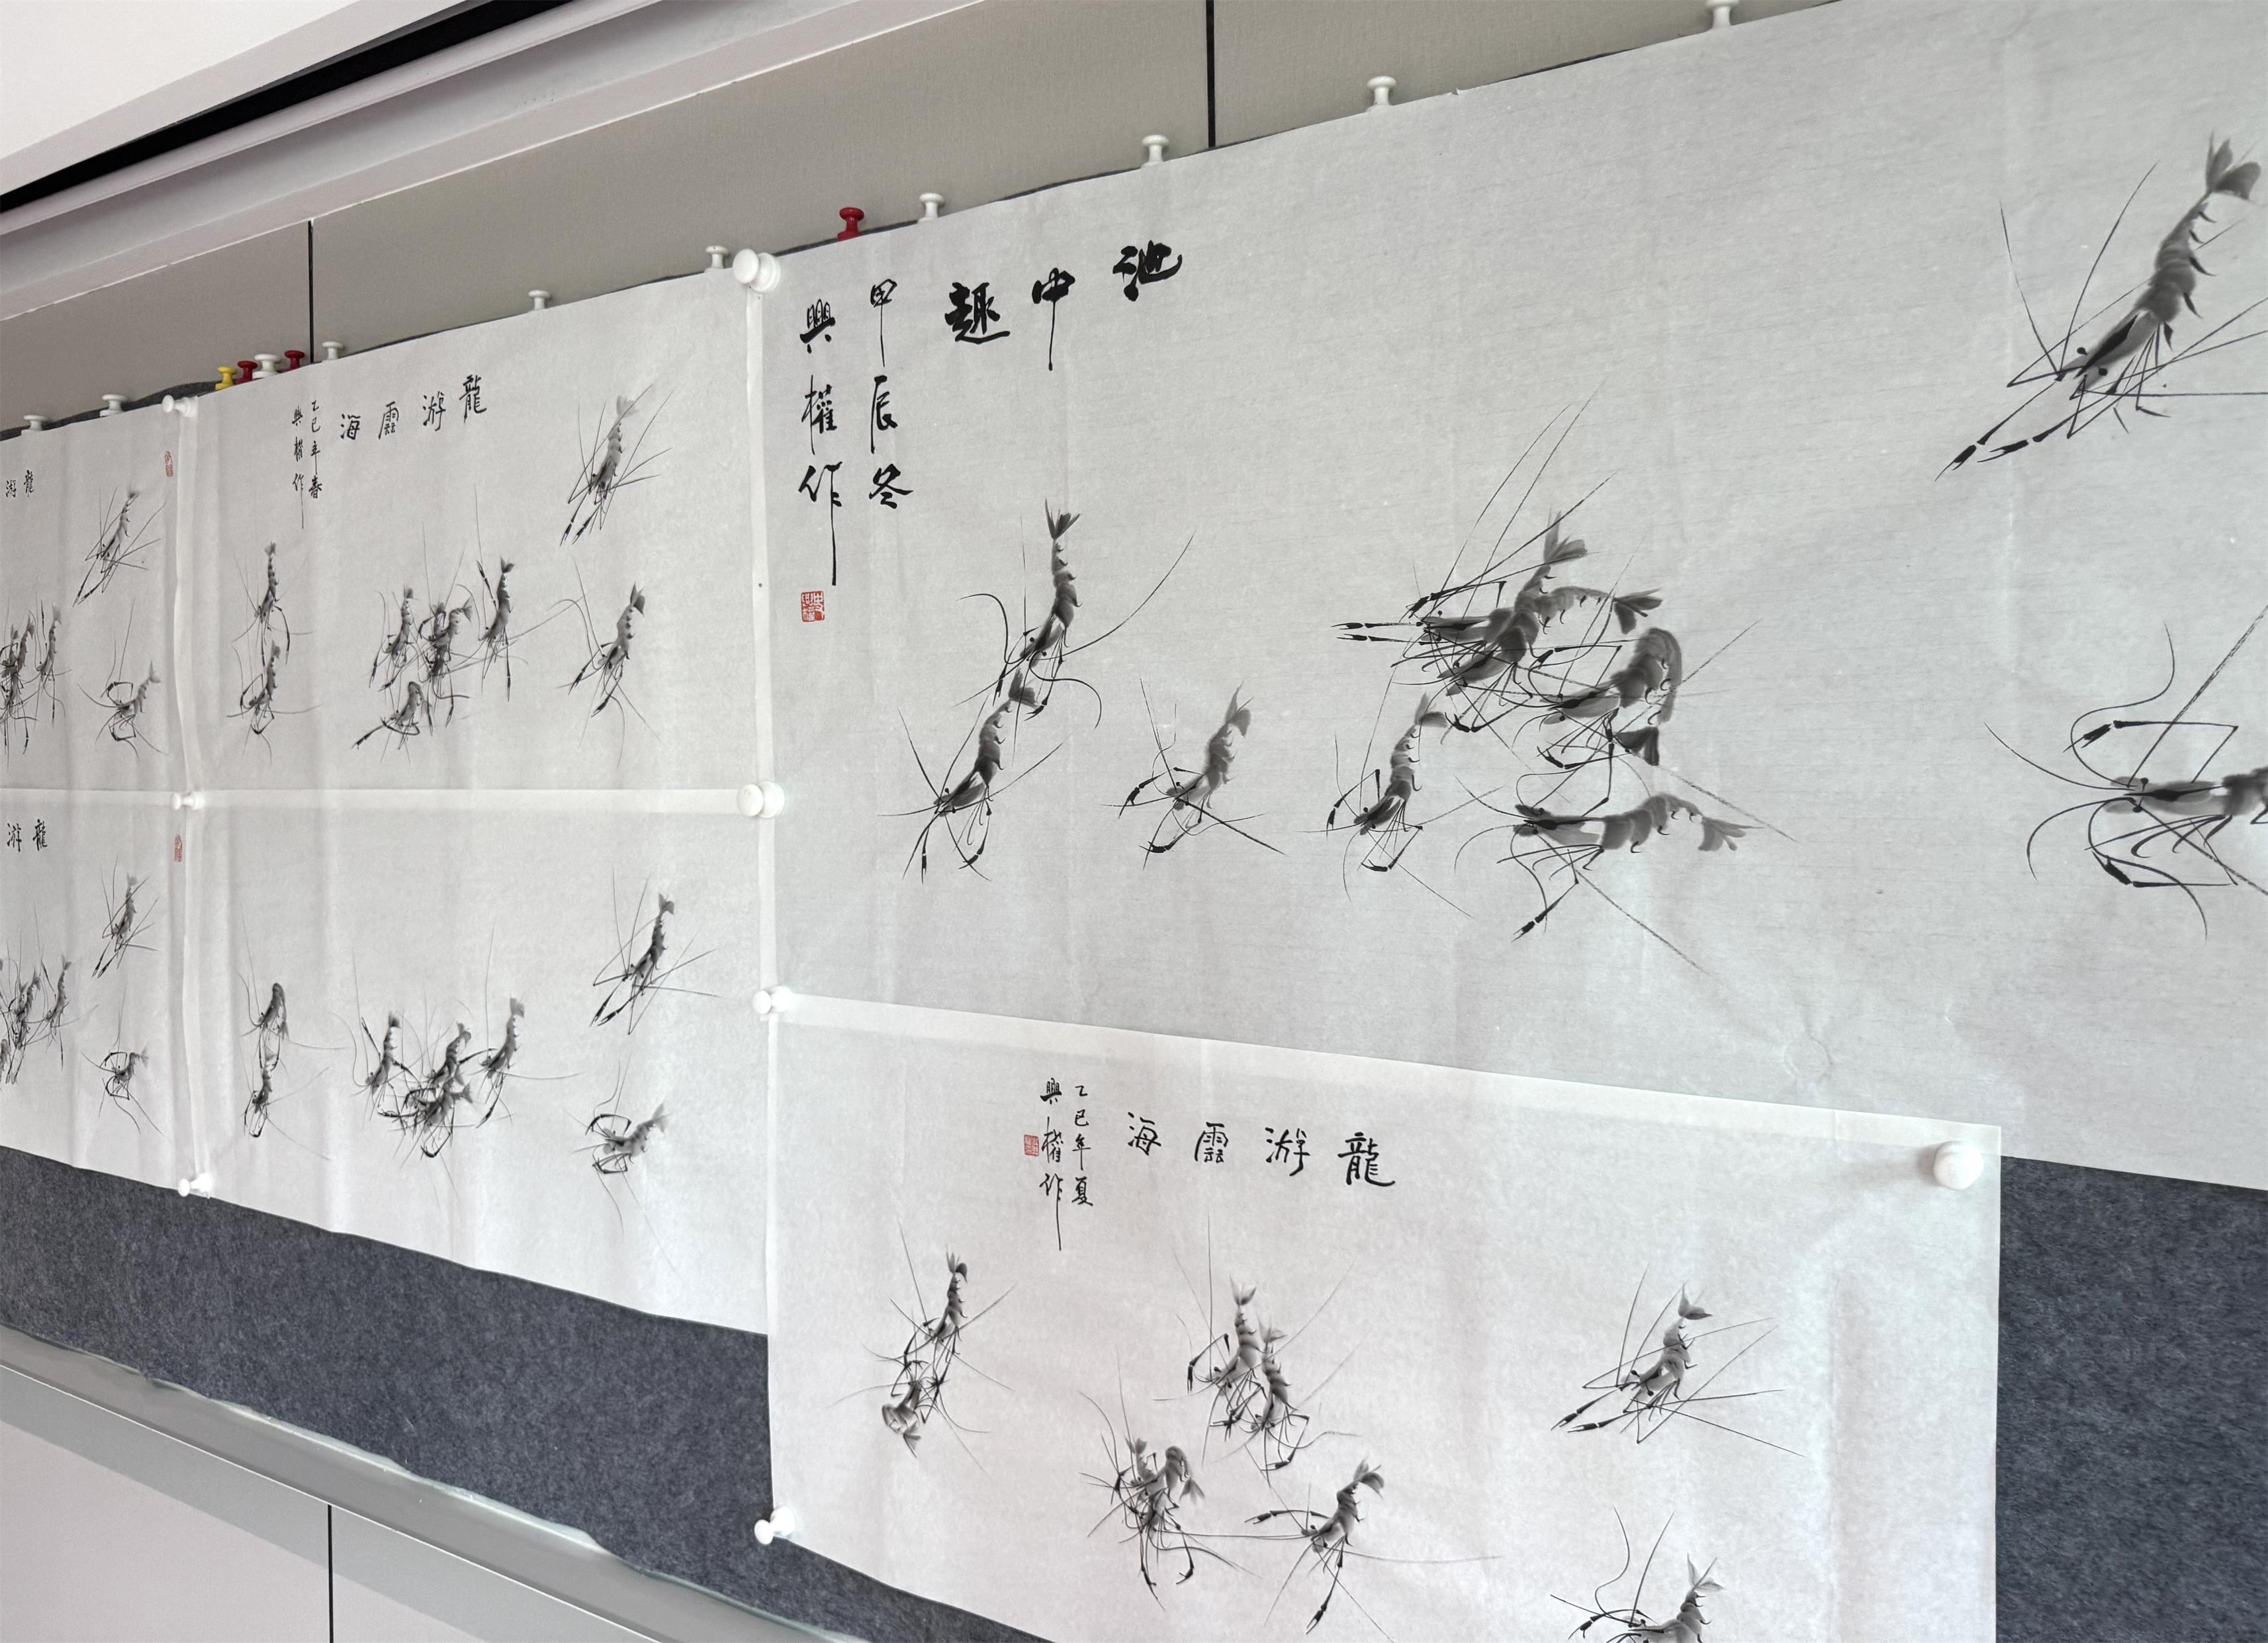 池中趣
甲辰冬
興權作
龍游雲海
乙巳年春
興權作
龍游雲海
乙巳年夏
興權作
龍游
龍游